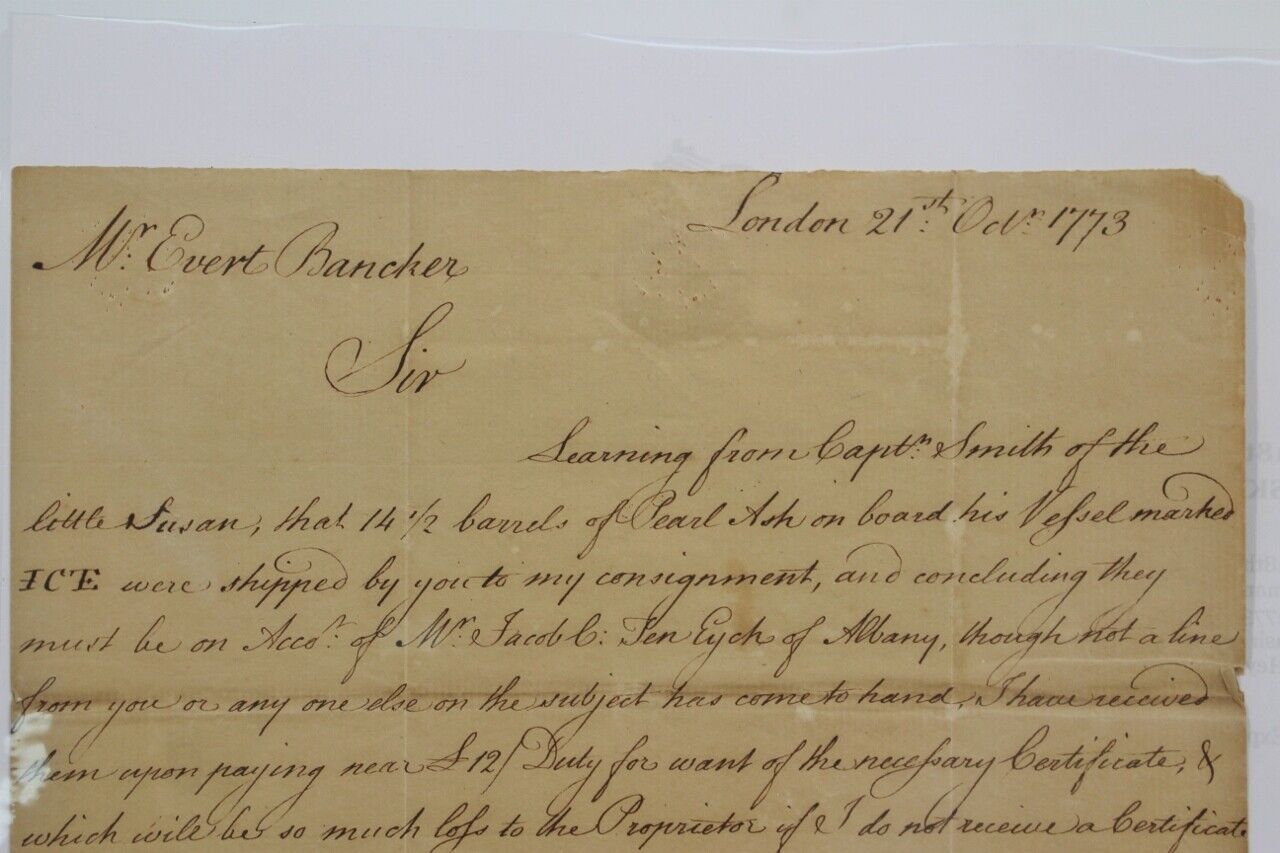 London 21st: Octr 1773
Mr. Evert Bancker
Sir
Learning from Captn. Smith of the
little Susan, that 14 1/2 barrels of Pearl Ash on board his Vessel marked
ICTE were shipped by you to my consignment, and concluding they
must be on Accot. of Mr. Jacob C: Ten Eyck of Albany, though not a line
from you or any one else on the subject has come to hand, I have received
them upon paying near £12/ Duty for want of the necessary Certificate, &
which will be so much loss to the Proprietor if I do not receive a Certificate